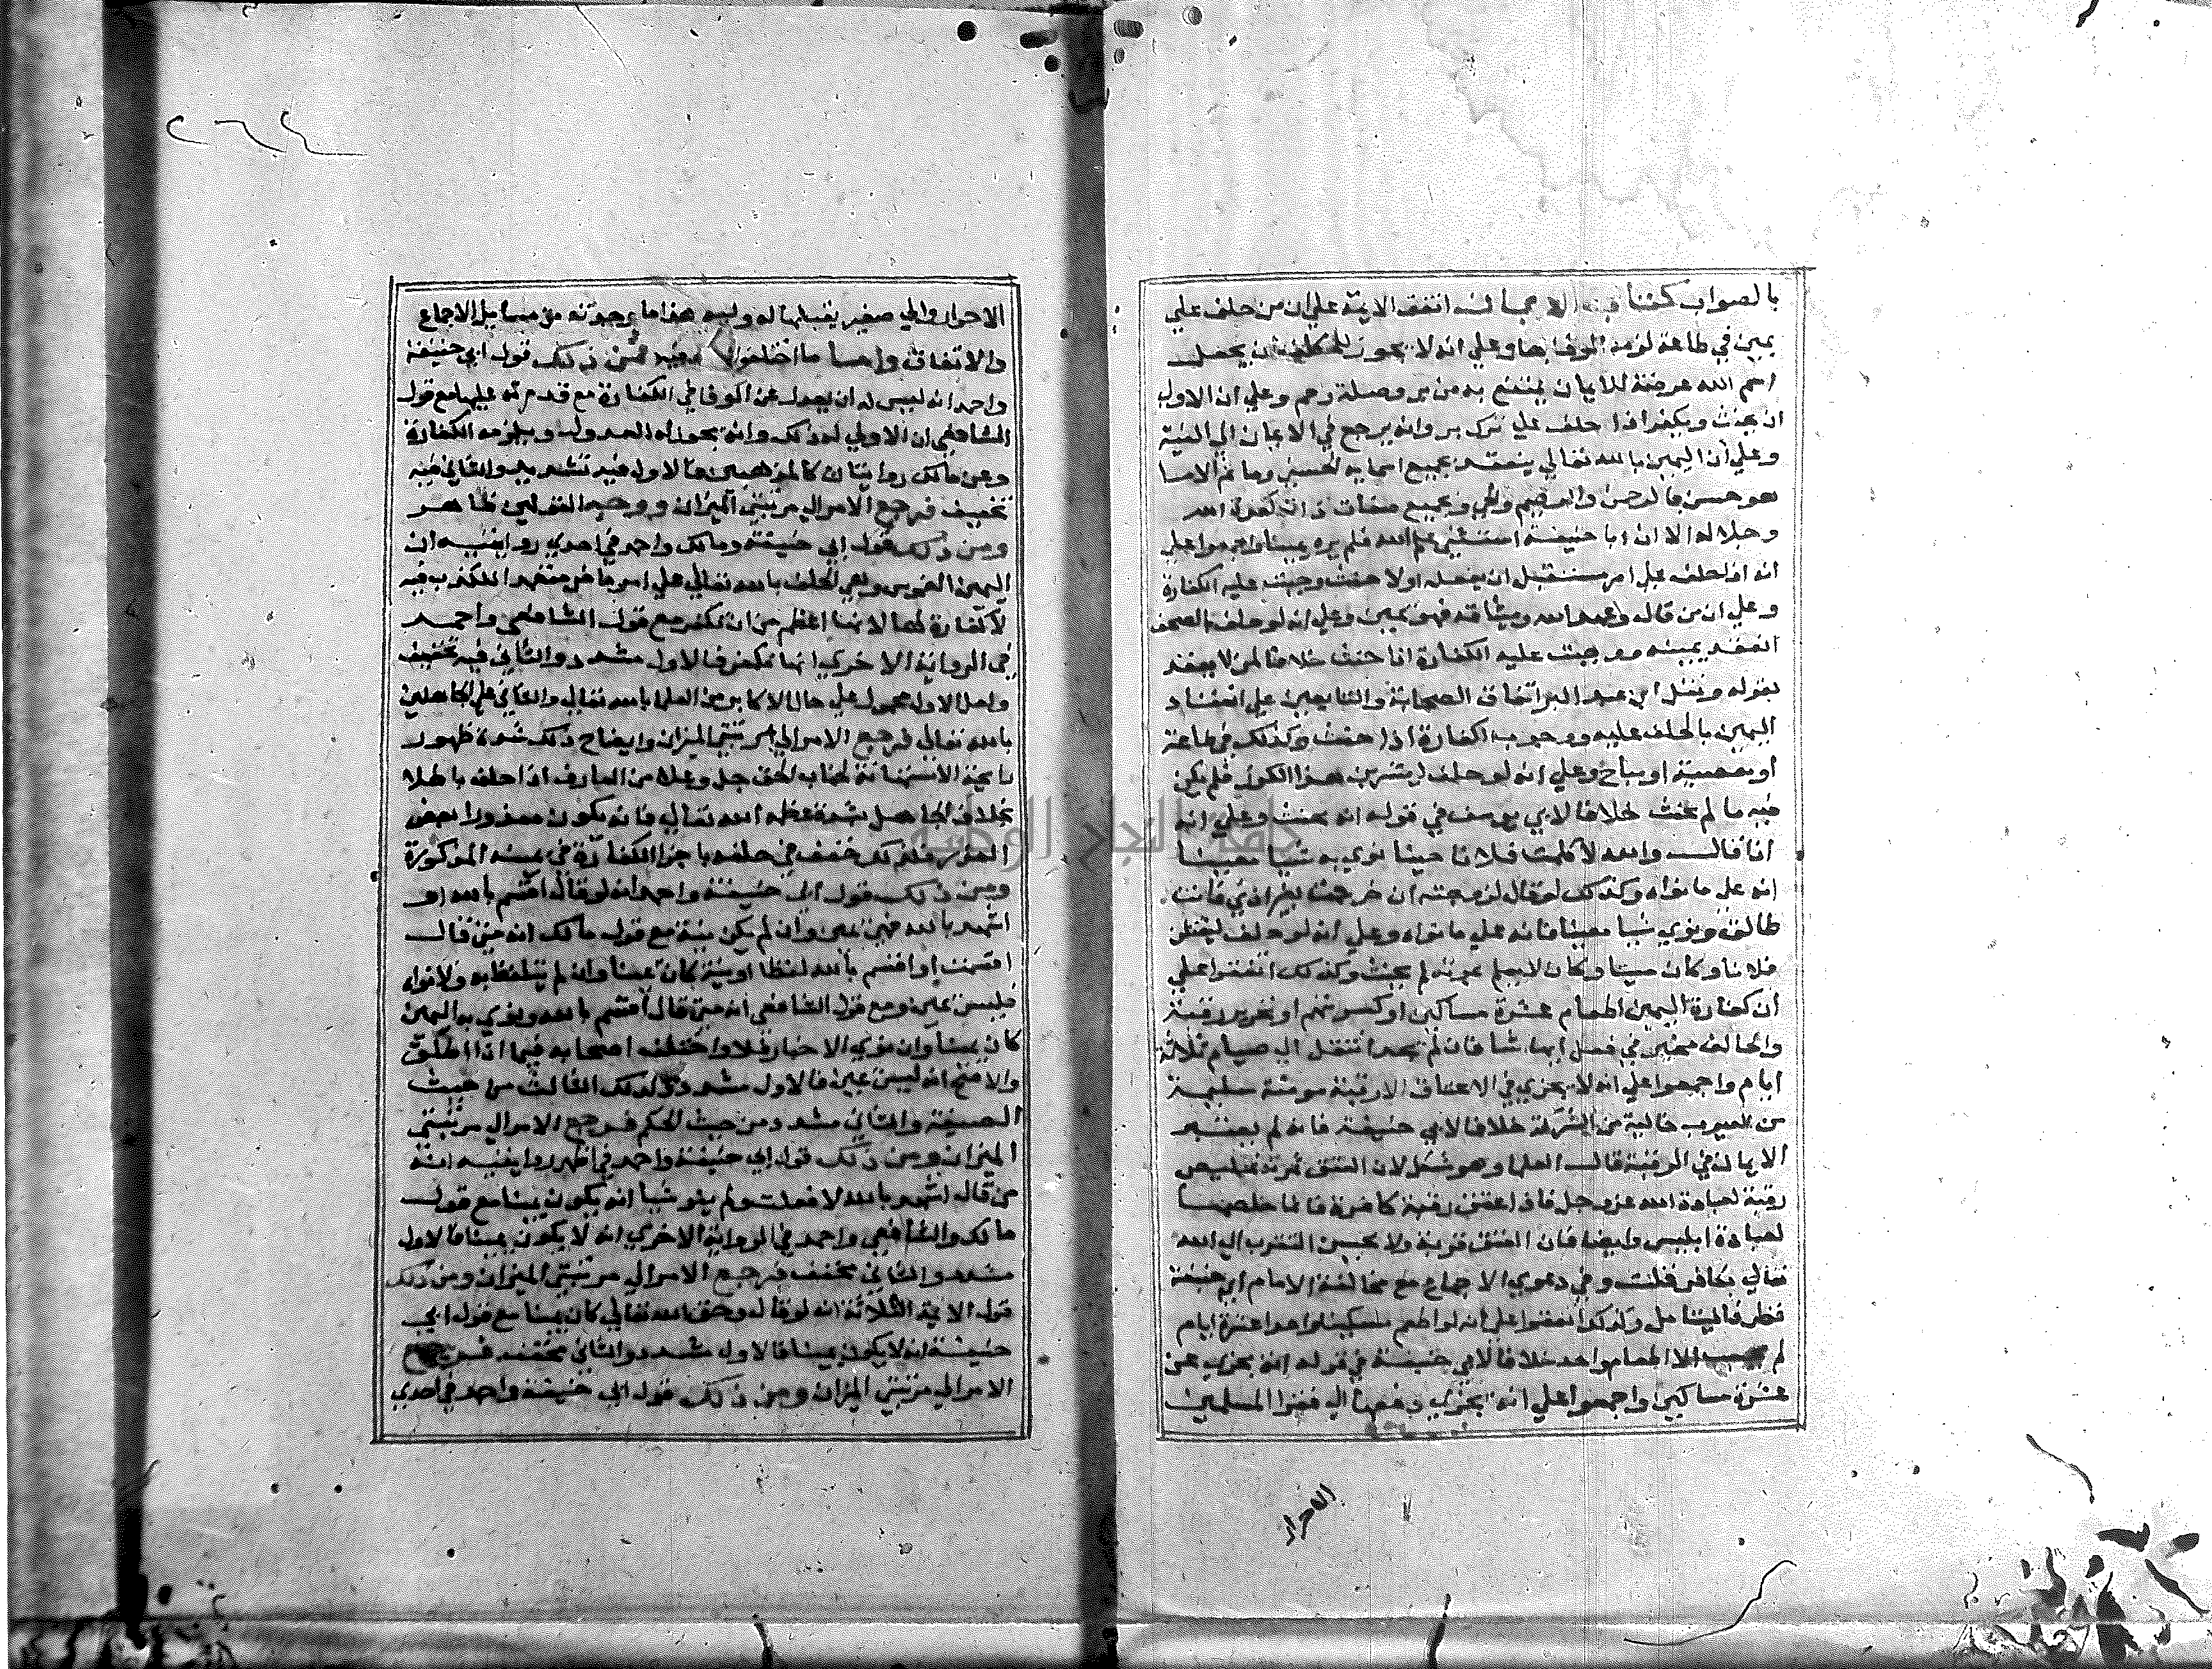 بالصواب كتاب الايمان اتفق الايمة علي ان من حلف علي
يمين في طاعة لزمه الوفا بها وعلي انه لا يجوز للمكلف ان يجعل
اسم الله عرضة للايمان يمتنع به من بر وصلة رحم وعلي ان الاولي
ان يحنث ويكفر اذا حلف علي ترك بر وانه يرجع في الايمان الي النية
وعلي ان اليمين بالله تعالي ينعقد بجميع اسمايه الحسني وما ثم الا ما
هو حسن كالرحمن والرحيم والحي وبجميع صفات ذاته كعزة الله
وجلاله الا ان ابا حنيفة استثني علم الله فلم يره يمينا واجمعوا علي
انه اذا حلف علي امر مستقبل ان يفعله او لا حنث وجبت عليه الكفارة
وعلي ان من قال وعهد الله وميثاقه فهو يمين وعلي انه لو حلف بالمصحف
انعقد يمينه ووجبت عليه الكفارة اذا حنث خلافا لمن لا يعتد
بقوله ونقل ابن عبد البر اتفاق الصحابة والتابعين علي انعقاد
اليمين بالحلف عليه ووجوب الكفارة اذا حنث وكذلك في طاعة
او معصية او مباح وعلي انه لو حلف ليشربن هذا الكوز فلم يكن
فيه ما لم يحنث خلافا لابي يوسف في قوله انه يحنث وعلي انه
اذا قال والله لا كلمت فلانا حينا نوي به شيا معينا
انه علي ما نواه وكذلك لو قال لزوجته ان خرجت بغير اذني فانت
طالق ونوي شيا معينا فانه علي ما نواه وعلي انه لو حلف ليقتلن
فلانا وكان ميتا وكان لا يعلم بموته لم يحنث وكذلك اتفقوا علي
ان كفارة اليمين اطعام عشرة مساكين او كسوتهم او تحرير رقبة
والحالف مخير في فعل ايها شا فان لم يجد انتقل الي صيام ثلاثة
ايام واجمعوا علي انه لا يجزي في الاعتاق الا رقبة مومنة سليمة
من العيوب خالية من الشركة خلافا لابي حنيفة فانه لم يعتبر
الايمان في الرقبة قال العلما وهو مشكل لان العتق ثمرته تخليص
رقبة لعبادة الله عز وجل فاذا اعتق رقبة كافرة فانما خلصها
لعبادة ابليس وايضا فان العتق قربة ولا يحسن التقرب الي الله
تعالي بكافر قلت وفي دعوي الاجماع مع مخالفة الامام ابي حنيفة
نظر فاليتامل وكذلك اتفقوا علي انه لو اطعم مسكينا واحدا عشرة ايام
لم يحسب الا اطعام واحد خلافا لابي حنيفة في قوله انه يجزي عن
عشرة مساكين واجمعوا علي انه يجزي دفعها الي فقرا المسلمين
الاحرار
٢٦٤
الاحرار والي صغير يقبلها له وليه هذا ما وجدته من مسايل الاجماع
والاتفاق واما ما اختلفوا فيه فمن ذلك قول ابي حنيفة
واحمد انه ليس له ان يعدل عن الوفا الي الكفارة مع قدرته عليها مع قول
الشافعي ان الاولي له ذلك وانه يجوز له العدول ويلزمه الكفارة
وعن مالك روايتان كالمذهبين فالاول فيه تشديد والثاني فيه
تخفيف فرجع الامر الي مرتبتي الميزان ووجه القولين ظاهر
ومن ذلك قول ابي حنيفة ومالك واحمد في احدي روايتيه ان
اليمين الغموس وهي الحلف بالله تعالي علي امر ماض متعمد الكذب فيه
لا كفارة لها لانها اعظم من ان تكفر مع قول الشافعي واحمد
في الرواية الاخري انها تكفر فالاول مشدد والثاني فيه تخفيف
ولعل الاول محمول علي حال الاكابر من العلما بالله تعالي والثاني علي الجاهلين
بالله تعالي فرجع الامر الي مرتبتي الميزان وايضاح ذلك شدة ظهور
رايحة الاستهانة بجناب الحق جل وعلا من العارف اذا حلف باطلا
بخلاف الجاهل بشدة عظمة الله تعالي فانه يكون معذورا بعض
العذر فلذلك خفف في حلفه باجزا الكفارة في يمينه المذكورة
ومن ذلك قول ابي حنيفة واحمد انه لو قال اقسم بالله او
اشهد بالله فهي يمين وان لم يكن نية مع قول مالك انه متي قال
اقسمت او اقسم بالله لفظا او نية كان يمينا وان لم يتلفظ به ولا نواه
فليس يمين ومع قول الشافعي انه متي قال اقسم بالله ونوي به اليمين
كان يمينا وان نوي الاخبار فلا واختلف اصحابه فيما اذا اطلق
والاصح انه ليس يمين فالاول مشدد وكذلك الثالث من حيث
الصيغة والثاني مشدد من حيث الحكم فرجع الامر الي مرتبتي
الميزان ومن ذلك قول ابي حنيفة واحمد في اظهر روايتيه انه
من قال اشهد بالله لا فعلت ولم ينو شيا انه يكون يمينا مع قول
مالك والشافعي واحمد في الرواية الاخري انه لا يكون يمينا فالاول
مشدد والثاني مخفف فرجع الامر الي مرتبتي الميزان ومن ذلك
قول الايمة الثلاثة انه لو قال وحق الله تعالي كان يمينا مع قول ابي
حنيفة انه لا يكون يمينا فالاول مشدد والثاني مخفف فرجع
الامر الي مرتبتي الميزان ومن ذلك قول ابي حنيفة واحمد في احدي